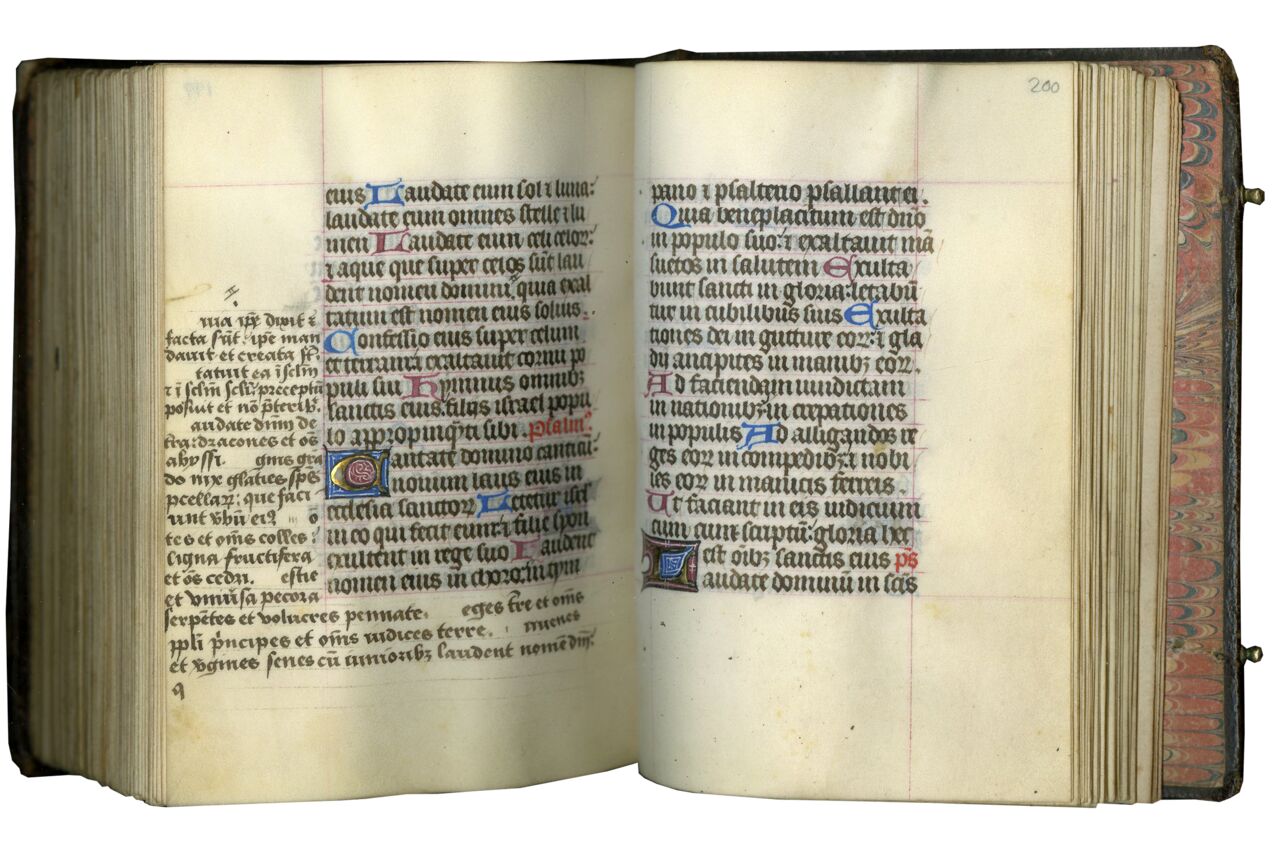 eius Laudate eum sol ⁊ luna:
laudate eum omnes stelle ⁊ lu
men Laudate eum celi celoꝝ:
⁊ aque que super celos sūt lau
dent nomen domini quia exal
tatum est nomen eius solius.
Confessio eius super celum
et terram ⁊ exaltauit cornu po
puli sui Hymnus omnibꝫ
sanctis eius: filijs israel popu
lo appropinq̄ti sibi. Psalm
Cantate domino canticū
nouum laus eius in
ecclesia sanctoꝝ Letetur isrl
in eo qui fecit eum: ⁊ filie syon
exultent in rege suo Laudent
nomen eius in choro: in tym
uia ip̄e dixit ⁊
facta sūt: ip̄e man
dauit et creata s̄t
tatuit ea ī sclm
⁊ ī sclm scli: preceptū
posuit et nō p̄terib̄.
audate dnm de
tr̄a: dracones et oēs
abyssi. gnis gra
do nix glaties sp̄s
pcellaꝝ: que faci
unt v̄bū eiꝰ o
tes et om̄s colles:
ligna fructifera
et oēs cedri. estie
et vniūsa pecora
serpētes et volucres pennate. eges t̄re et om̄s
ppl̄i p̄ncipes et om̄s iudices terre. iuuenes
et v̄gines senes cū iunioribꝫ laudent nomē dn̄i:
200
pano ⁊ psalterio psallant ei.
Quia beneplacitum est dn̄o
in populo suo: ⁊ exaltauit mā
suetos in salutem Exulta
bunt sancti in gloria: letabū
tur in cubilibus suis Exulta
tiones dei in gutture eoꝝ: ⁊ gla
dij ancipites in manibꝫ eoꝝ.
Ad faciendam uindictam
in nationibꝫ: in crepationes
in populis Ad alligandos re
ges eoꝝ in compedibꝫ: ⁊ nobi
les eoꝝ in manicis ferreis.
Ut faciant in eis iudicium
cum cum scriptū: gloria hec
est oibꝫ sanctis eius p̄s
Laudate dominū in sc̄is